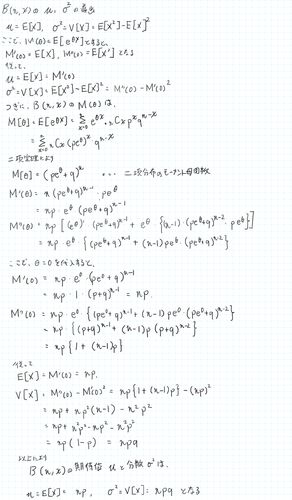 B(n,x)の μ, σ²の算出
μ=E[X], σ²=V[X]=E[X²]-E[X]²
ここで, M(θ)=E[e^{θX}]とすると,
M'(0)=E[X], M''(0)=E[X²]となる
従って
μ=E[X]=M'(0)
σ²=V[X]=E[X²]-E[X]²=M''(0)-M'(0)²
つぎに, B(n,x)の M(θ)は,
M[θ]=E[e^{θX}]=Σ_{x=0}^{n} e^{θx}・nCx p^x q^{n-x}
=Σ_{x=0}^{n} nCx(pe^θ)^x q^{n-x}
二項定理より
M[θ]=(pe^θ+q)^n ・・・ 二項分布のモーメント母関数
M'(θ)=n(pe^θ+q)^{n-1}・pe^θ
=np・e^θ(pe^θ+q)^{n-1}
M''(θ)=np[(e^θ)'(pe^θ+q)^{n-1}+e^θ{(n-1)(pe^θ+q)^{n-2}・pe^θ}]
=np・e^θ{(pe^θ+q)^{n-1}+(n-1)pe^θ(pe^θ+q)^{n-2}}
ここで, θ=0を代入すると,
M'(0)=np・e^0・(pe^0+q)^{n-1}
=np・1・(p+q)^{n-1}=np.
M''(0)=np・e^0{(pe^0+q)^{n-1}+(n-1)pe^0(pe^0+q)^{n-2}}
=np・{(p+q)^{n-1}+(n-1)p(p+q)^{n-2}}
=np{1+(n-1)p}
従って
E[X]=M'(0)=np.
V[X]=M''(0)-M'(0)²=np{1+(n-1)p}-(np)²
=np+np²(n-1)-n²p²
=np+n²p²-np²-n²p²
=np(1-p)=npq
以上により
B(n,x)の期待値 μと分散 σ²は,
μ=E[X]=np, σ²=V[X]=npq となる